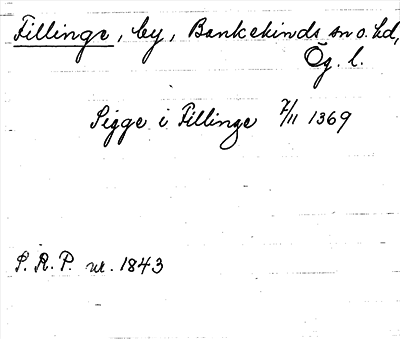 Fillinge, by, Bankekinds sn o. hd,
Ög. l.
Sigge i Fillinge 7/11 1369
S. R. P. nr. 1843